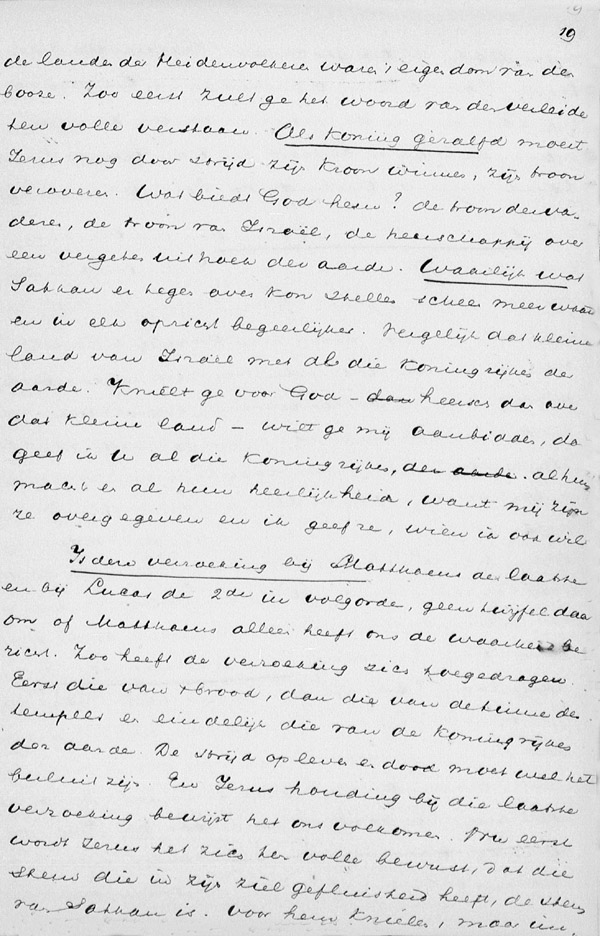 19
de landen der Heidenvolkeren waren 't eigendom van den
booze. Zoo eerst zult ge het woord van den verleider
ten volle verstaan. Als Koning gezalfd moest
Jezus nog door strijd zijn Kroon winnen, zijn troon
veroveren. Wat biedt God hem? de troon der va-
deren, de troon van Israël, de heerschappij over
een vergeten uithoek der aarde. Waarlijk wat
Sathan er tegen over kon stellen scheen meer waard
en in elk opzicht begeerlijker. Vergelijk dat kleine
land van Israël met al die Koningrijken der
aarde. Knielt ge voor God – dan heersch dan over
dat kleine land – wilt ge mij aanbidden, dan
geef ik U al die Koningrijken, der aarde. al hun
macht en al hun heerlijkheid, want mij zijn
ze overgegeven en ik geef ze, wien ik ook wil
Is deze verzoeking bij Matthaeus de laatste
en bij Lucas de 2de in volgorde, geen twijfel daar
om of Matthaeus alleen heeft ons de waarheid be
richt. Zoo heeft de verzoeking zich toegedragen.
Eerst die van 't brood, dan die van de tinne des
tempels en eindelijk die van de Koningrijken
der aarde. De strijd op leven en dood moet wel het
besluit zijn. En Jezus houding bij die laatste
verzoeking bewijst het ons volkomen. Nu eerst
wordt Jezus het zich ten volle bewust, dat die
stem die in zijn ziel gefluisterd heeft, de stem
van Sathan is. Voor hem knielen, maar im